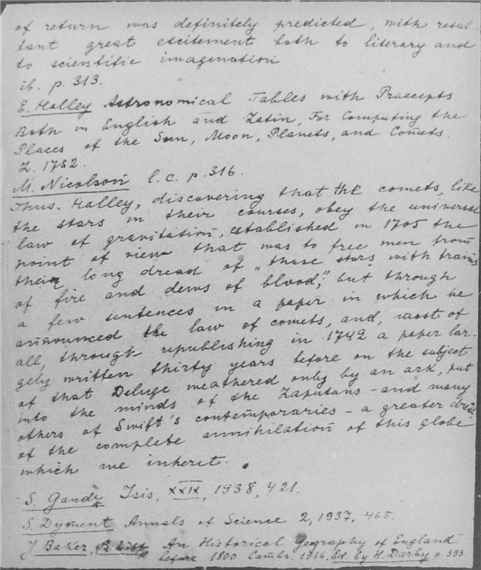 of return was definitely predicted, with resul-
tant great excitement both to literary and
to scientific imagination
ib. p. 313.
E. Halley Astronomical Tables with Praecepts
Both in English and Latin, For Computing the
Places of the Sun, Moon, Planets, and Comets.
L. 1752.
M. Nicolson l.c. p. 316.
Thus. Halley, discovering that the comets, like
the stars in their courses, obey the universal
law of gravitation, established in 1705 the
point of view that was to free men from
their long dread of "those stars with trains
of fire and dews of blood", but through
a few sentences in a paper in which he
announced the law of comets, and, most of
all, through republishing in 1742 a paper lar-
gely written thirty years before on the subject
of that Deluge weathered only by an ark, put
into the minds of the Laputans - and many
others of Swift's contemporaries - a greater dread
of the complete annihilation of this globe
which we inherit.
S. Gandz Isis, XXIX, 1938, 421.
S. Dyment Annals of Science 2, 1937, 465.
J Baker, An Historical Geography of England
before 1800 Cambr. 1936, Ed. by H. Darby p 393